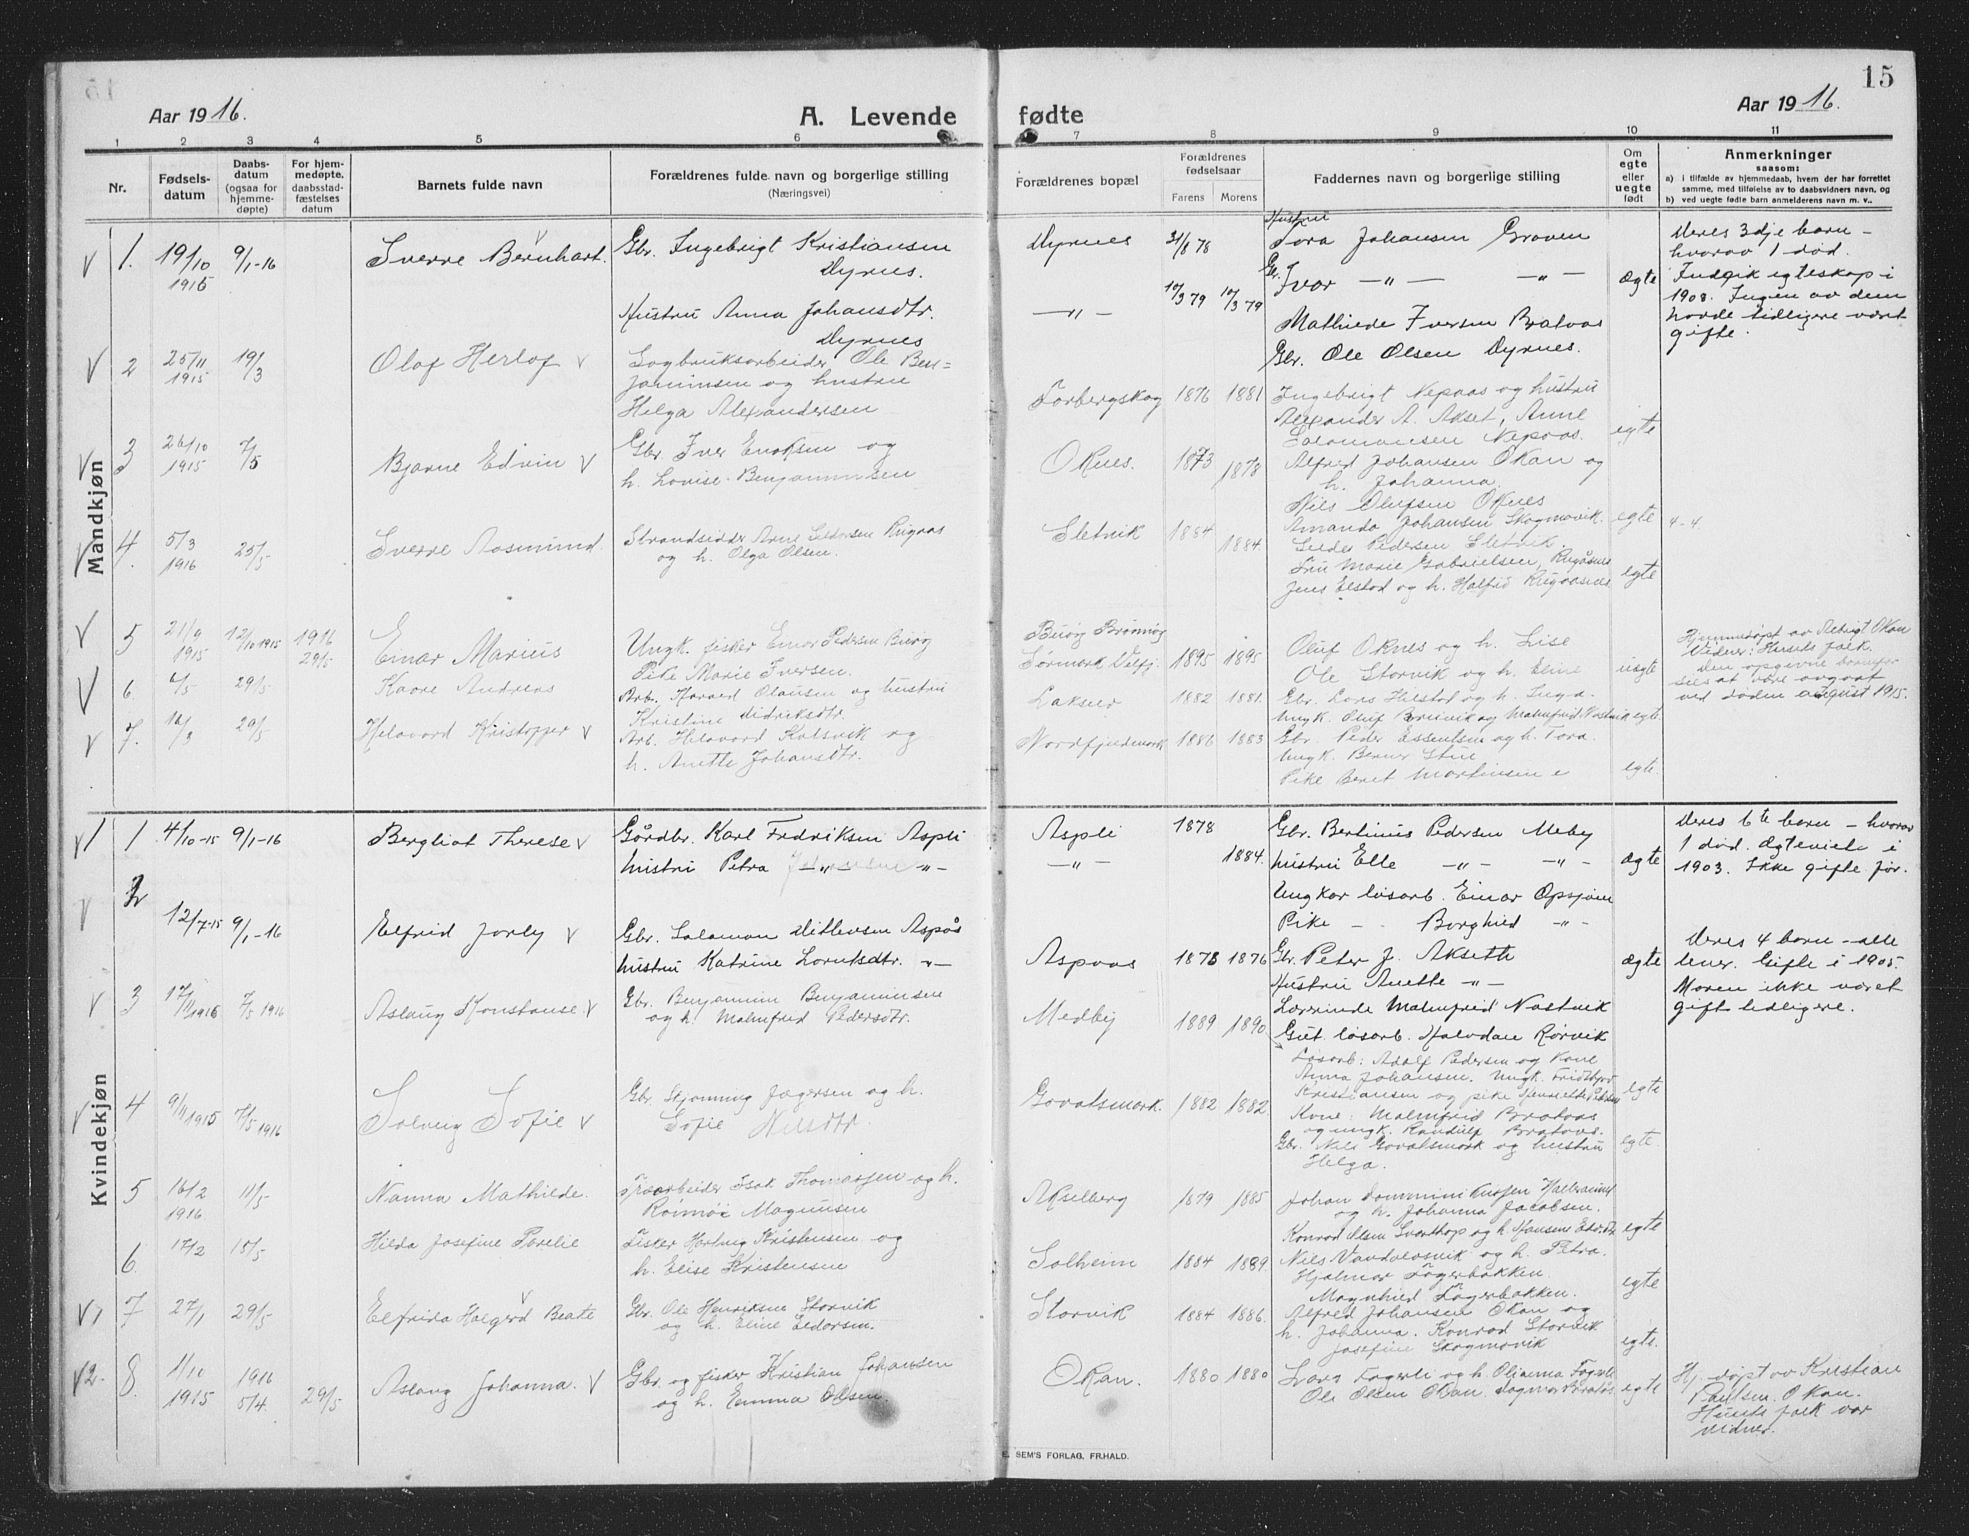 15
Aar 1916.
A. Levende fødte
Aar 1916.
1 2 3 4 5 6 7 8 9 10 11
Nr.
Fødsels-datum
Daabs-datum (ogsaa for hjemme-døpte)
For hjem-medøpte. daabsstad-fæstelses datum
Barnets fulde navn
Forældrenes fulde navn og borgerlige stilling
(Næringsvei)
Forældrenes bopæl
Forældrenes fødselsaar
Farens Morens
Faddernes navn og borgerlige stilling
Om egte eller uegte født
Anmerkninger
saasom:
a) i tilfælde av hjemmedaab, hvem der har forrettet
samme, med tilføielse av to daabsvidners navn, og
b) ved uegte fødte barn anmelderens navn m. v..
Mandkjøn
1. 19/10 1915 9/1-16 Sverre Bernhart. Gbr. Ingebrigt Kristiansen
Dyrnes.
Hustru Anna Johansdtr.
Dyrnes
Dyrnes 31/8 78
10/3 79 10/3 79
Hustru
Tora Johansen Groven
Gbr. Ivar — " — — " —
Mathilde Iversen Brataas
Gbr. Ole Olsen Dyrnes.
Ægte
Deres 3dje barn –
hvorav 1 død.
Indgik egteskap i
1908. Ingen av dem
havde tidligere været
gifte.
2 25/11 1915 19/3 Olaf Herlof Sagbruksarbeider Ole Ben=
jaminsen og hustru
Helga Alexandersen
Torbergskog 1876 1881 Ingebrigt Nepaas og hustru
Alexander A. Akset, Anne
Salamonsen Nepaas.
egte
3 26/10 1915 7/5 Bjarne Edvin Gbr. Iver Enoksen og
h. Lovise Benjaminsen
Oknes. 1873 1878 Alfred Johansen Okan og
h. Johanna.
Nils Olufsen Oknes
Amanda Johansen Skogmovik.
egte
4. 5/3 1916 25/5 Sverre Aasmund. Strandsidder Arne
og h. Olga Olsen.
Sletvik 1884 1884.
Pedersen Sletvik.
Fru Marie Gabrielsen,
Jens Elstad og h. Halfrid
egte
4-4.
5 21/9 1915 12/10 1915 1916 29/5 Einar Marius Ungk. fisker Einar Pedersen Burøy
Pike Marie Iversen.
Burøy Brønnøy
Sørmark Velfj. 1895 1895 Oluf Oknes og h. Lise
Ole Storvik og h. Eline
uegte
Hjemmedøpt av Okan
Vidner: Husets folk.
Den opgivne barnefar
sies at være avgaat
ved døden august 1915.
6. 6/5 29/5 Kaare Andreas Arb. Harald Olausen og hustru
Kristine Didriksdtr.
Laksner 1882 1881. Gbr. Lars Hilstad og h. Inga.
Ungk. Oluf og Malmfrid Nastvik egte.
7. 12/3 29/5 Helavard Kristoffer Arb. Helavard Kalsvik og
h. Anette Johansdtr.
Nordfjordmark 1886 1883 Gbr. Peder Essentsen og h. Tora.
Ungk. Berner Stur
Pike Beret Martinsen
egte.
Kvindekjøn
1 4/10-15 9/1-16 Bergliot Therese Gårdbr. Karl Fredriksen Aspli
hustru Petra — " —
Aspli 1878
— " — 1884.
Gbr. Bertinus Pedersen Meby
hustru Elle — " — — " —
Ungkar løsarb. Einar Opsjøen
Pike — Borghild — " —
Ægte
Deres 6te barn – hvorav
1 død. Ægteviet i
1903. Ikke gifte før.
2 12/7-15 9/1-16 Elfrid Jorly Gbr. Salamon Ditlevsen Aspås
hustru Katrine Lorntsdtr. — " —
Aspaas 1878 1876 Gbr. Peter J. Akseth
Hustru Anette — " —
Lærerinde Malmfrid Nastvik
Gut løsarb. Halvdan Rørvik
Ægte
Deres 4 barn – alle
lever. Gifte i 1905.
Moren ikke været
gift tidligere.
3 17/1 1916 7/5 1916 Aslaug Konstanse Gbr. Benjamin Benjaminsen
og h. Malmfrid Pedersdtr.
Medby 1889 1890 Løsarb: Adolf Pedersen og kone
Anna Johansen. Ungk. Fridtjof
Kristiansen og pike
egte
4 9/11 1915 7/5 1916 Solveig Sofie Gbr. Skjønning Jægersen og h.
Sofie Nilsdtr.
Govatsmark. 1882 1882 Kone: Malmfrid Brataas
og ungk. Randulf Brataas.
Gbr. Nils Govatsmark og hustru
Helga.
egte.
5 16/2 1916 11/5 Nanna Mathilde. Isak Thomassen og h.
Ronnøi Magnusen
Akselberg 1879 1885 Johan
og h. Johanna Jacobsen.
Konrad Olsen og h.
egte
6. 17/2 15/5 Hilda Josefine Perelie Fisker Hartvig Kristensen og
h. Elise Kristensen
Solheim 1884 1889. Nils og h. Petra.
Hjalmar Fagerbakken
Magnhild Fagerbakken.
egte
7 27/1 29/5 Elfrida Halgerd Beate Gbr. Ole Henriksne Storvik
og h. Eline Eldorsen.
Storvik 1884 1886. Alfred Johansen Okan og
h. Johanna. Konrad Storvik
Josefine Skogmovik
egte.
8. 1/10 1915 1916 5/4 29/5 Aslaug Johanna. Gbr. og fisker Kristian Johansen
og h. Emma Olsen
Okan. 1880 1880 Lars Fagerli og h. Olianna Fagerli
Ole Olsen Okan. Dagmar
egte
Hj. døpt av Kristian
Paulsen. Okan.
Husets folk var
vidner.
E. SEM'S FORLAG. FR.HALD.